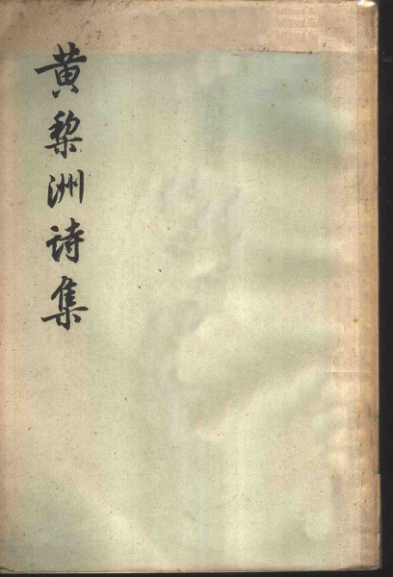 黄黎洲诗集